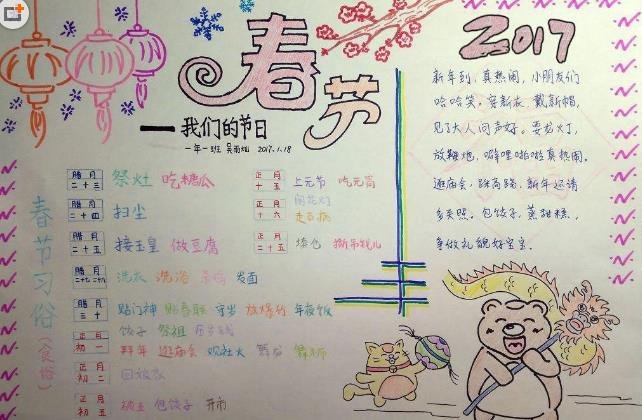 春节
2017
一我们的节日
一年一班 吴雨灿 2017.1.18
新年到,真热闹,小朋友们
哈哈笑。穿新衣、戴新帽,
见了大人问声好。耍龙灯,
放鞭炮,噼哩啪啦真热闹。
逛庙会,踩高跷,新年还请
多关照。包饺子,蒸甜糕,
争做礼貌好宝宝。
春节习俗(民俗)
腊月二十三 祭灶 吃糖瓜
腊月二十四 扫尘
腊月二十五 接玉皇 做豆腐
腊月 洗衣 洗浴 发面
腊月三十 贴门神 贴春联 守岁 放爆竹 年夜饭
饺子 祭祖 压岁钱
正月初一 拜年 逛庙会 观社火 舞龙 舞狮
正月初二 回娘家
正月初五 破五 包饺子 开市
正月十五 上元节 吃元宵
闹花灯
正月十六 走百病
正月二十五 填仓